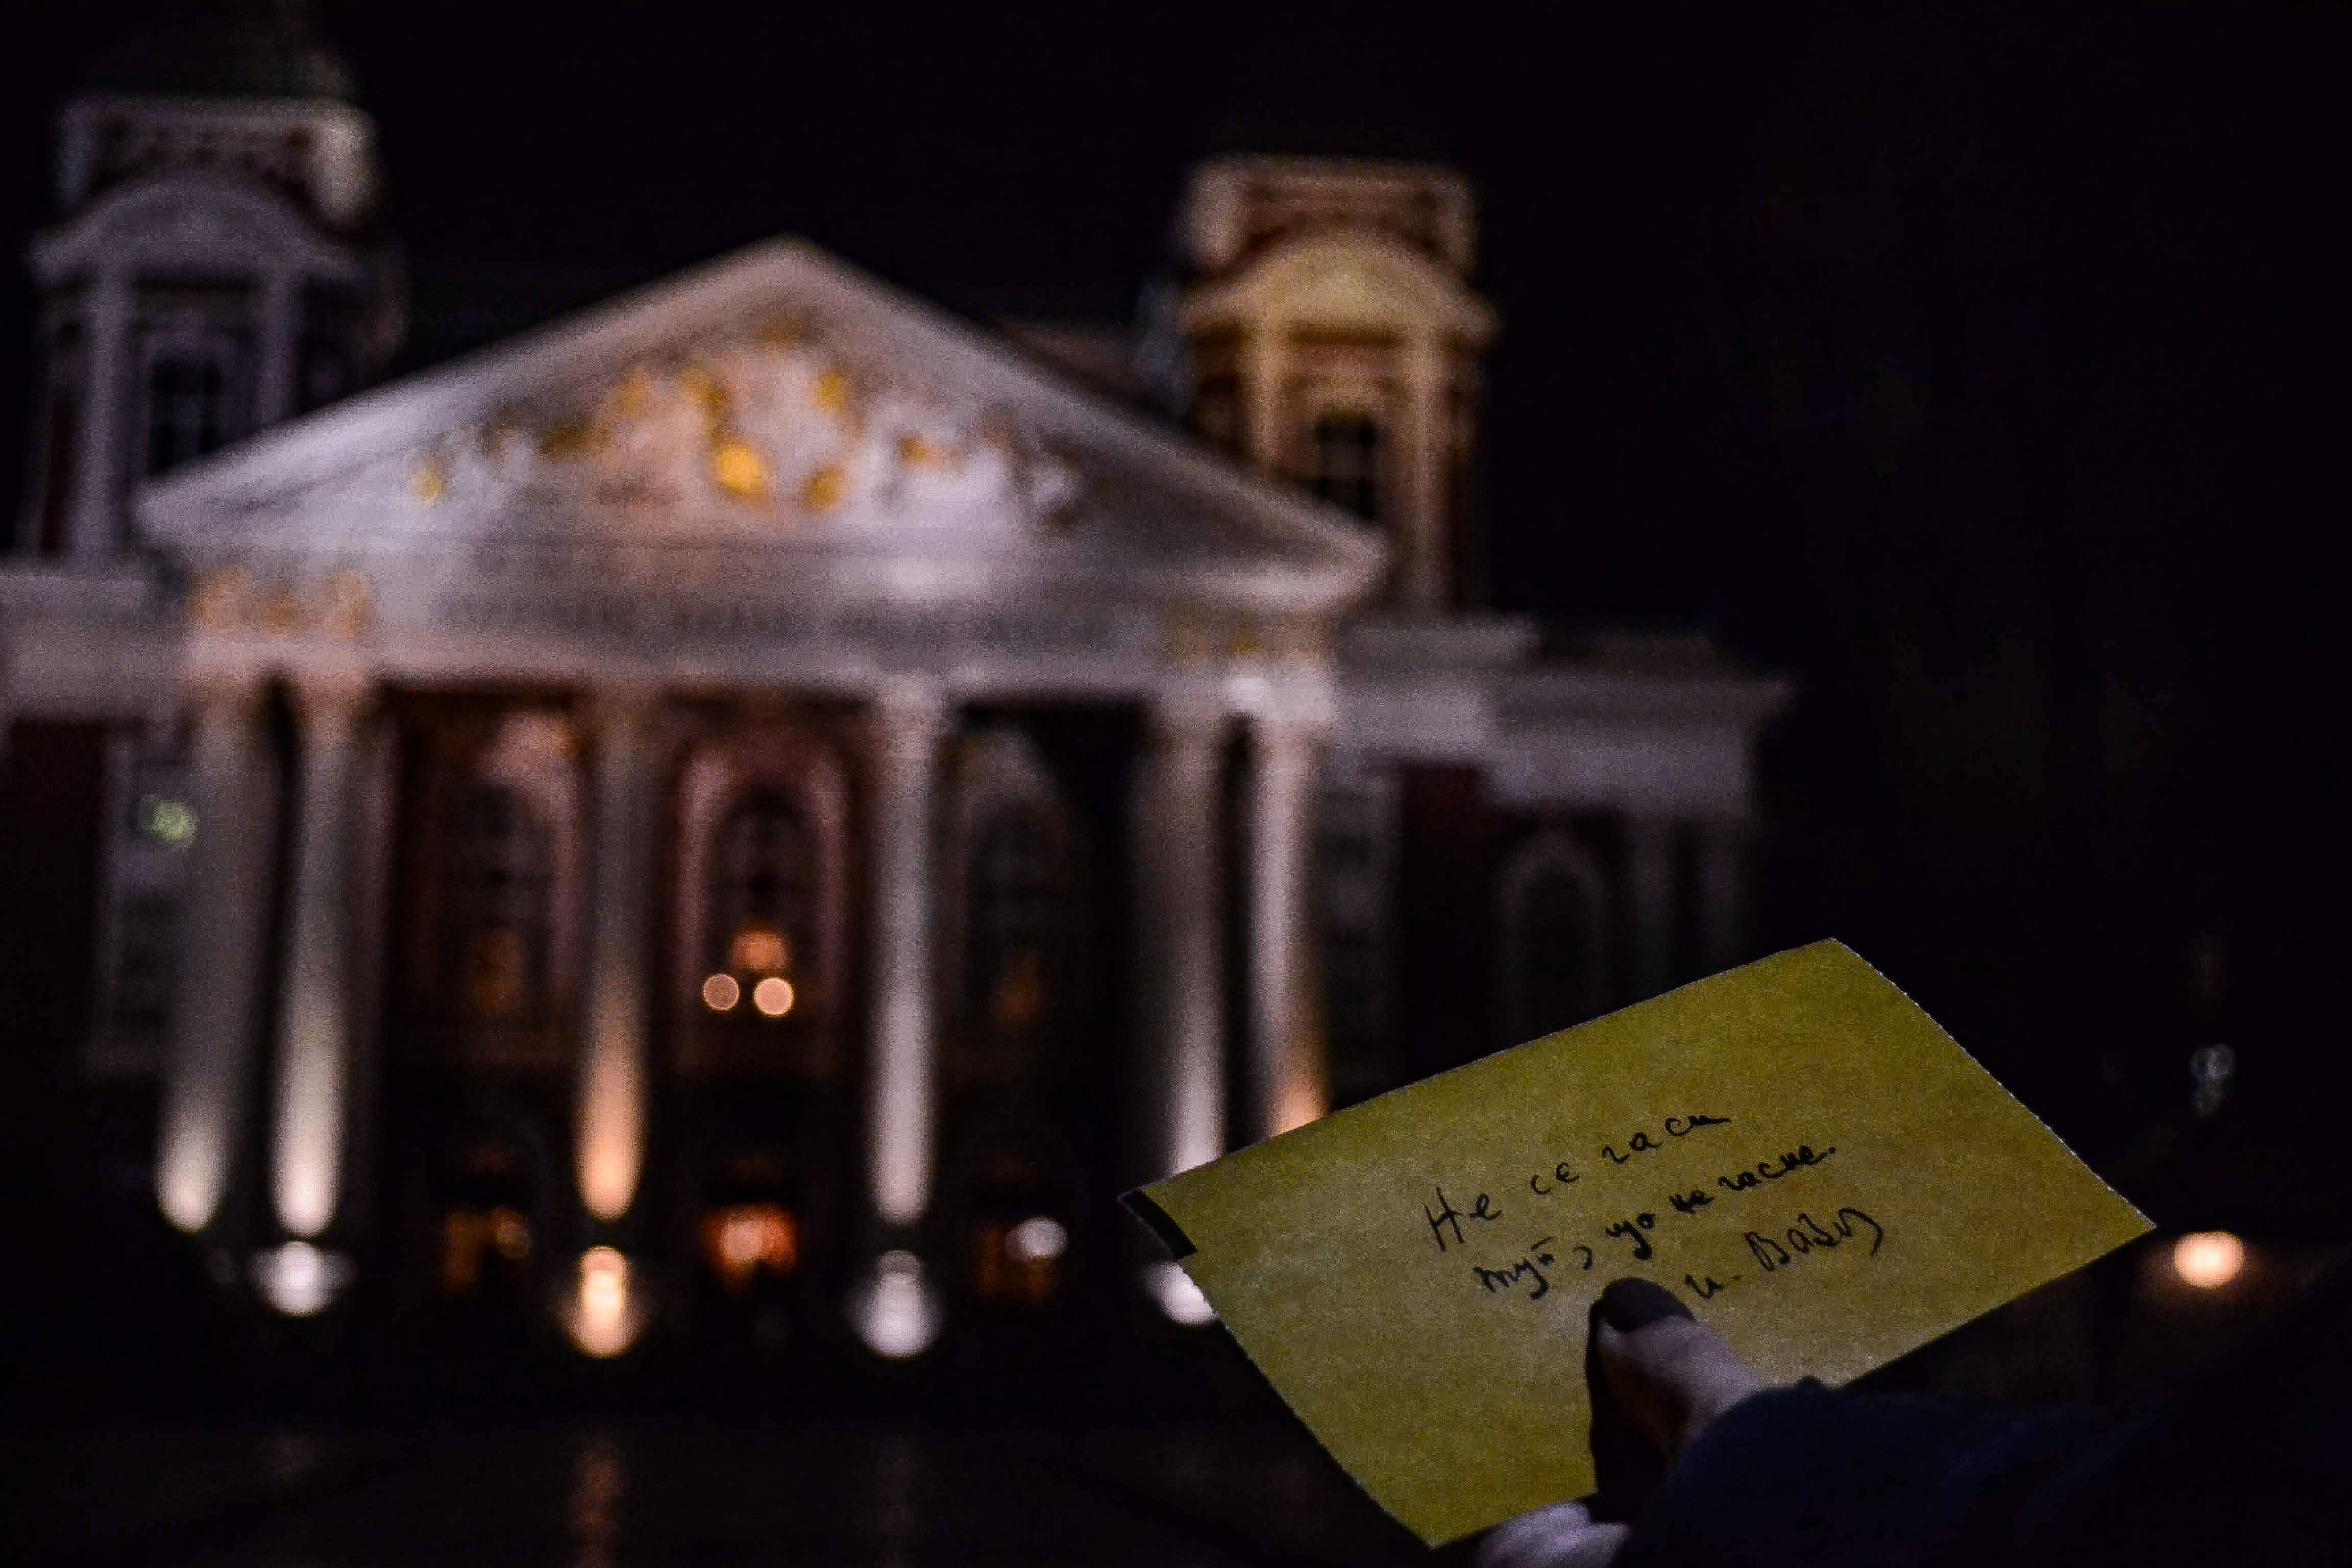 Не се гаси
туй, що не гасне.
И. Вазов